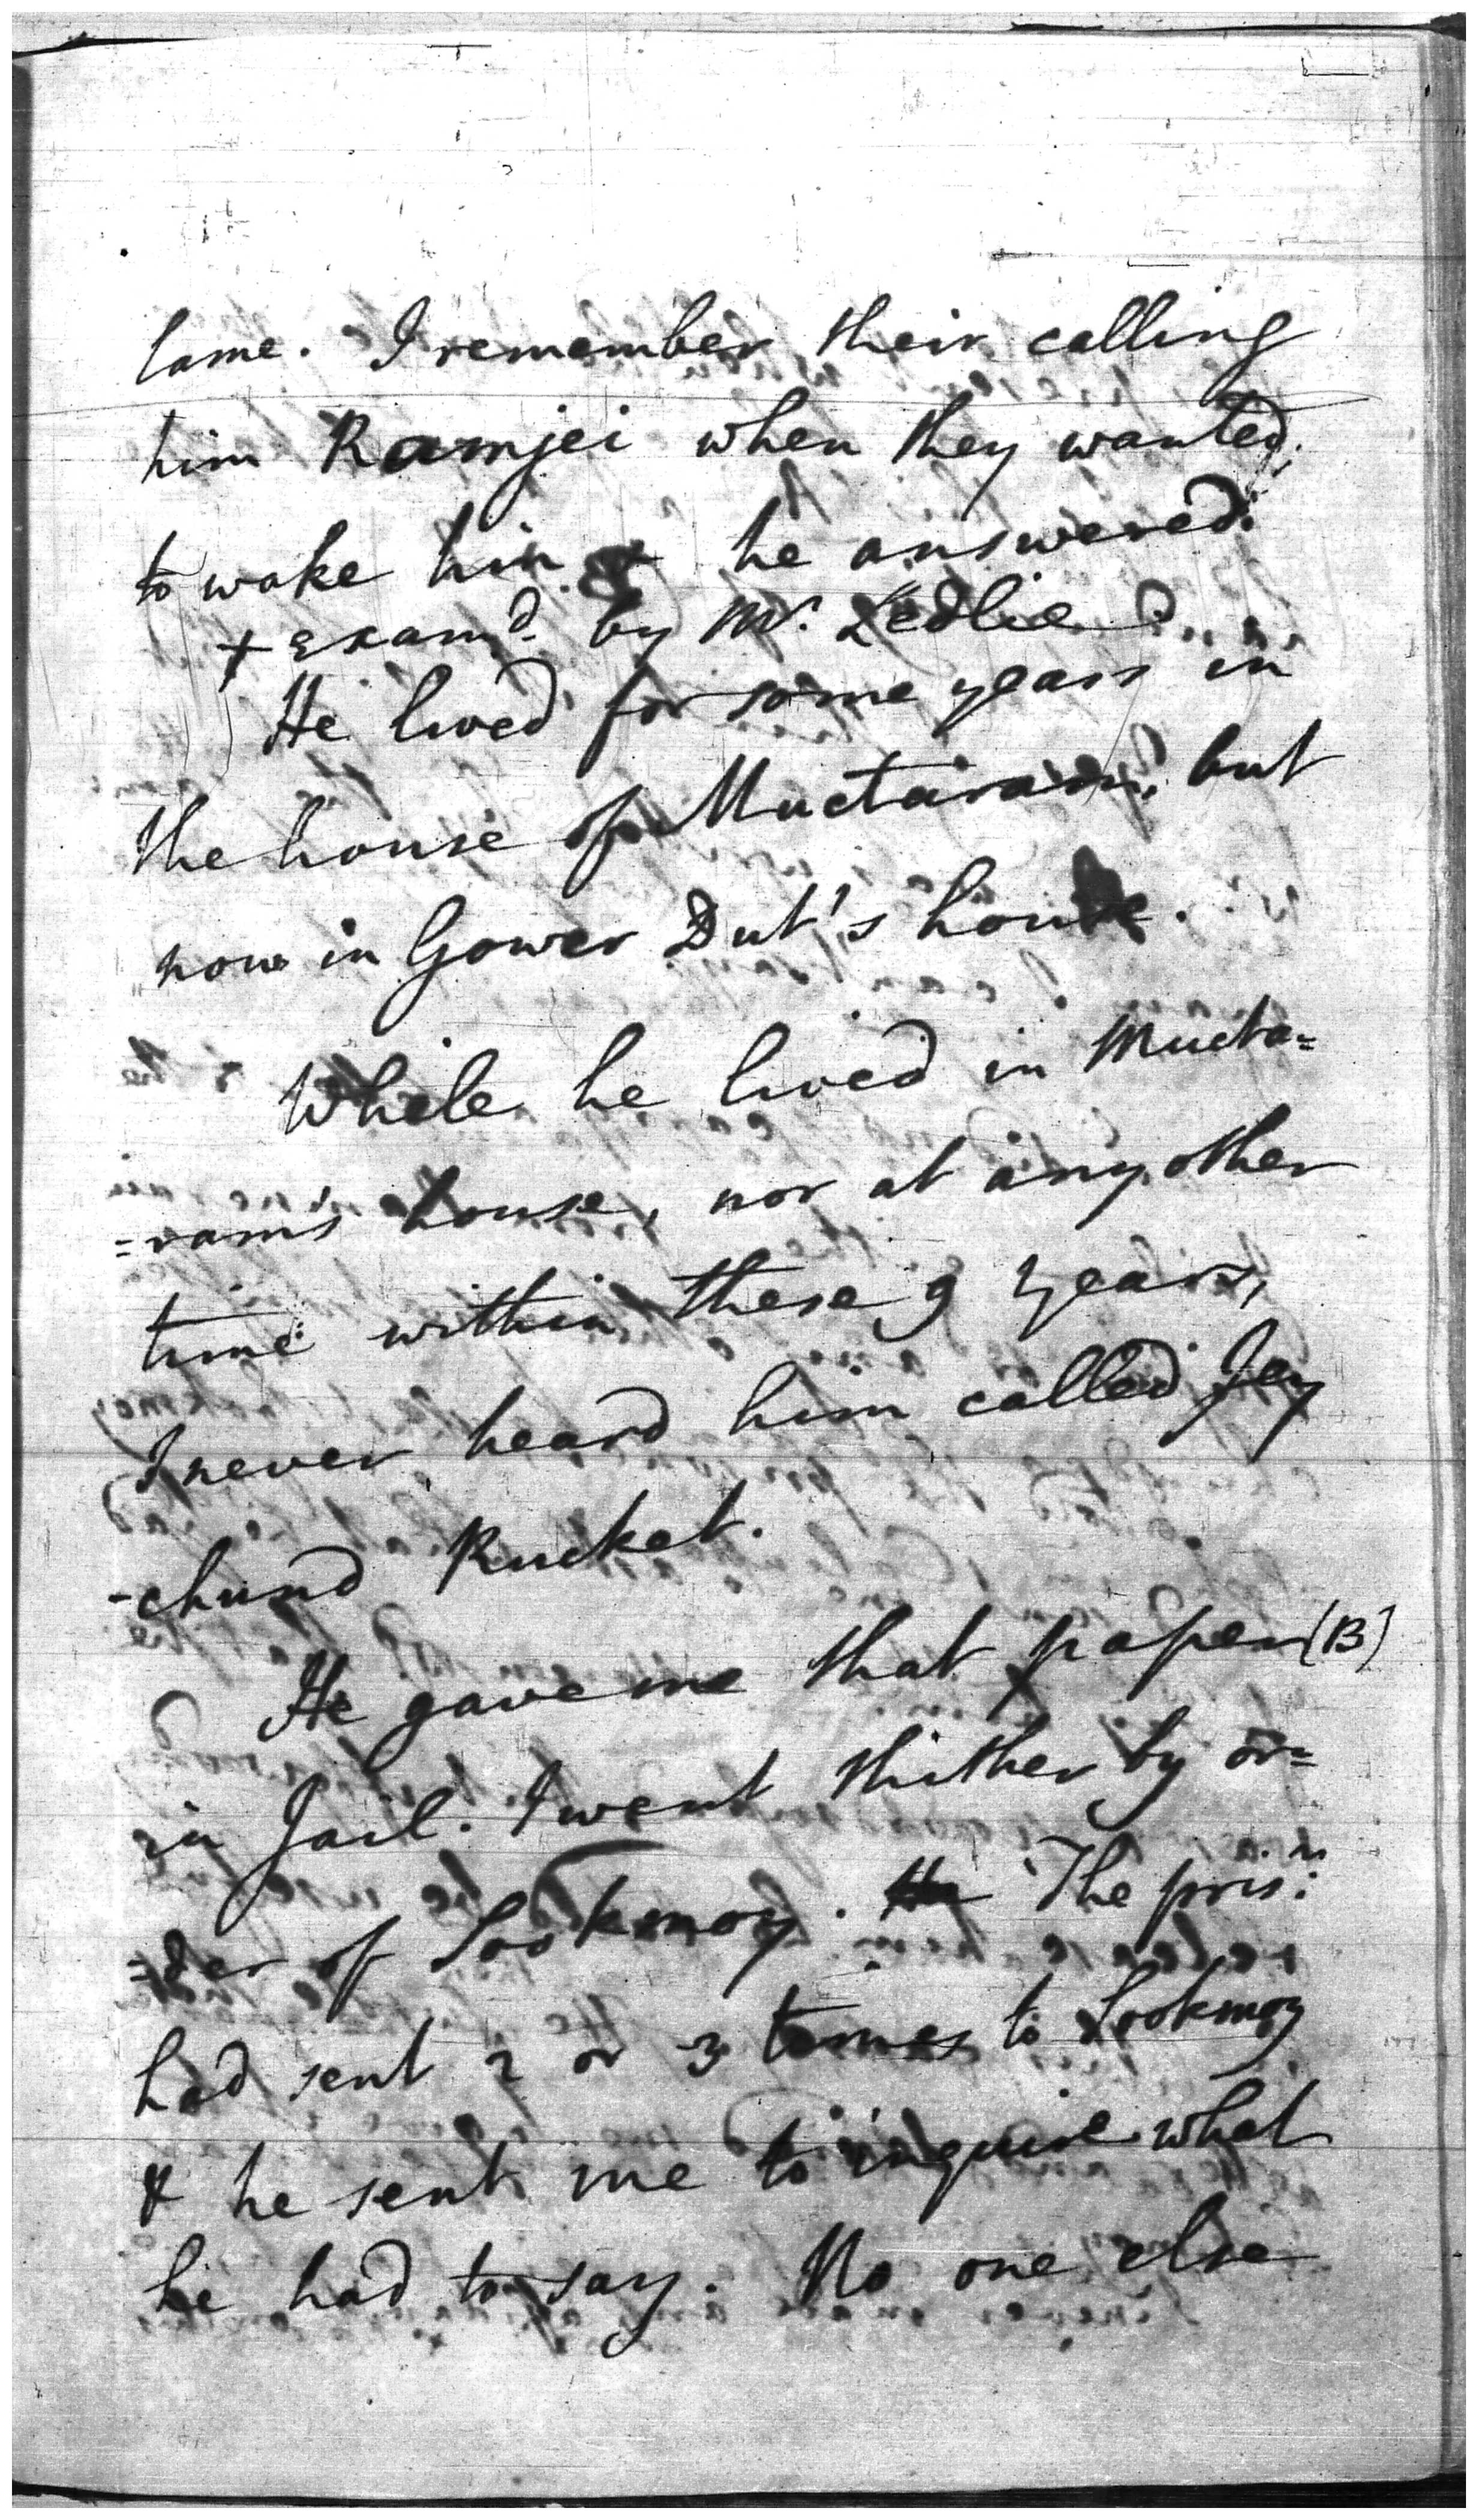 lame. I remember their calling
him Ramjei when they wanted
to wake him & he answered.
+ examd. by Mr. Ledlie
He lived for some years in
the house of Muctaram, but
now in Gower Dut's house.
While he lived in Mucta=
=ram's house, nor at any other
time within these 9 years,
I never heard him called Jey
-chund Rucket.
He gave me that paper (B)
in Jail. I went thither by or=
=der of Lookmoy. The prisr.
had sent 2 or 3 times to Lookmoy
& he sent me to inquire what
he had to say. No one else